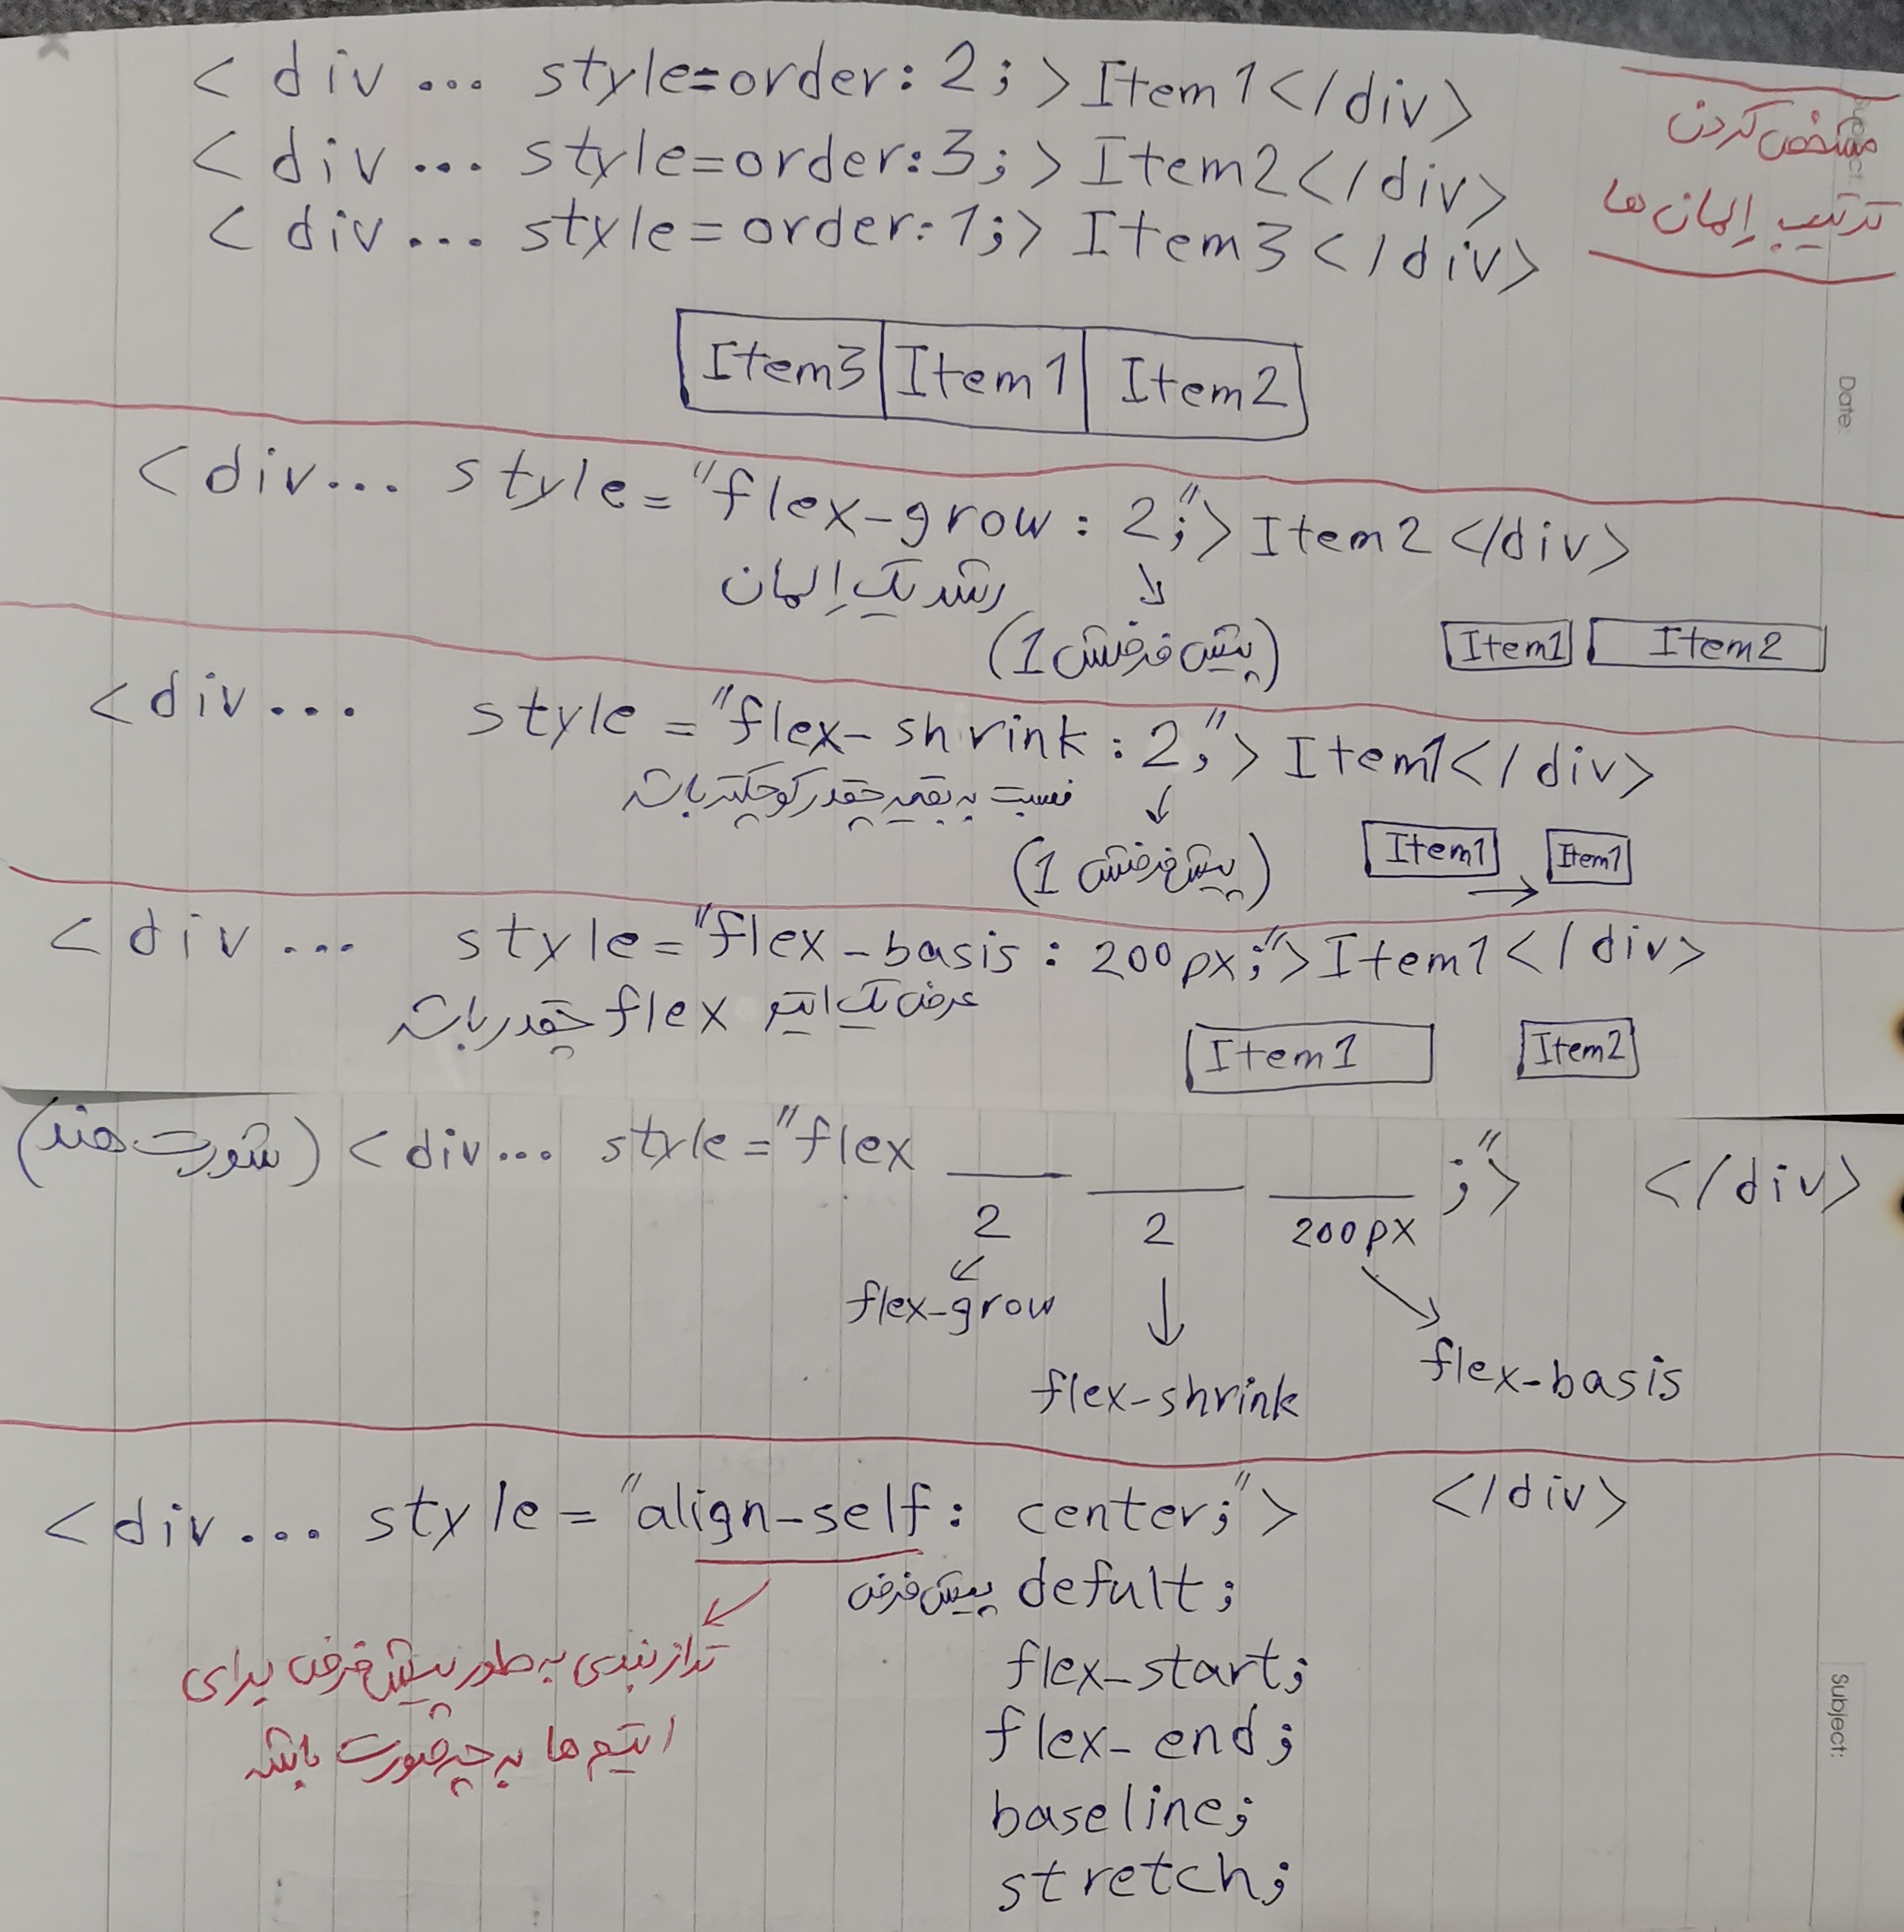 < div ... style=order: 2; >Item1</div>
< div ... style=order:3; >Item2</div>
< div ... style=order:1; >Item3</div>
مشخص کردن
ترتیب اِلمان ها
Item3 Item1 Item2
Date:
<div... style="flex-grow : 2;">Item2</div>
رشد یک اِلمان
(پیش فرضش 1)
Item1 Item2
<div... style="flex-shrink : 2;">Item1</div>
نسبت به بقیه چقدر کوچکتر باشه
(پیش فرضش 1)
Item1 → Item1
<div ... style="flex-basis : 200px;">Item1</div>
عرض یک ایتم flex چقدر باشه
Item1 Item2
(شورت هند) <div... style="flex ___ ___ ___ ;"> </div>
2 2 200px
flex-grow
flex-shrink
flex-basis
<div... style="align-self: center;"> </div>
پیش فرض defult;
تراز بندی به طور پیش فرض برای
ایتم ها به چه صورت باشه
flex-start;
flex-end;
baseline;
stretch;
Subject: